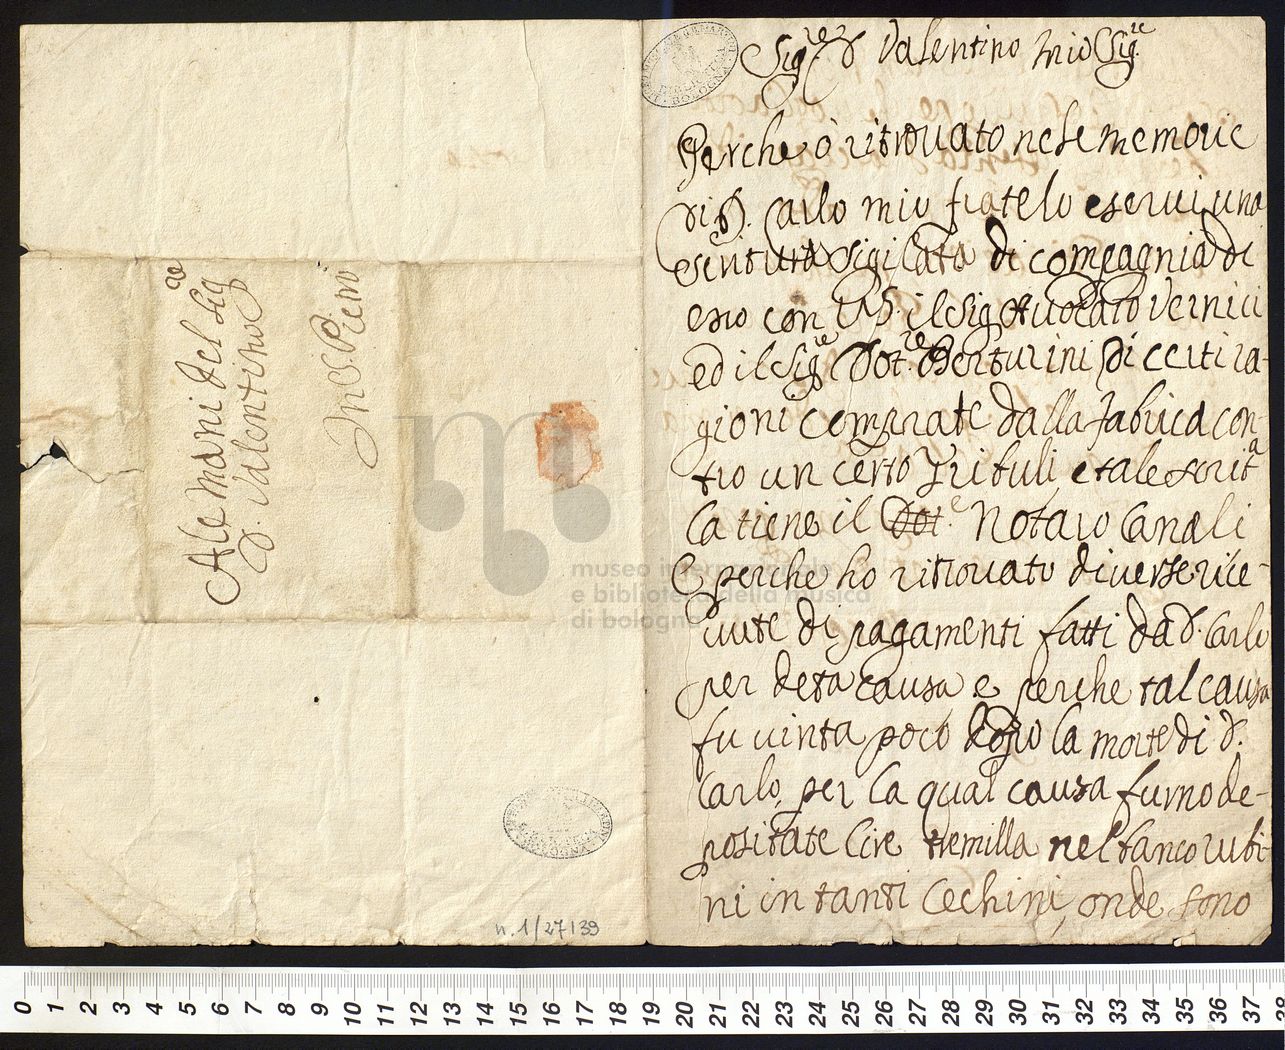 Ale Mani del Sig.re
D. Valentino
In S. Piero
n. 1/27139
Sig.re D Valentino mio Sig.re
Perche ò ritrovato nele memorie
di D. Carlo mio fratelo eservi una
scritura sigilata di compagnia di
esso con VS. il Sig. Avocato Vernici
ed il Sig.re Dot.re Berturini di certi ra-
gioni comprate dalla Fabrica con-
tro un certo Trifuli e tale scrit.a
la tiene il Dot.e Notaro Canali
e perche ho ritrovato diverse rice-
vute di pagamenti fatti da D. Carlo
per deta causa e perche tal causa
fu vinta poco dopo la morte di D.
Carlo, per la qual causa furno de-
positate lire tremilla nel banco rubi-
ni in tanti Cechini, onde sono
museo internazionale
e biblioteca della musica
di bologna
0 1 2 3 4 5 6 7 8 9 10 11 12 13 14 15 16 17 18 19 20 21 22 23 24 25 26 27 28 29 30 31 32 33 34 35 36 37 38